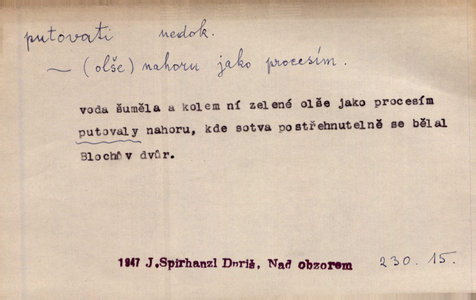 putovati nedok.
— (olše) nahoru jako procesím.
voda šuměla a kolem ní zelené olše jako procesím
putovaly nahoru, kde sotva postřehnutelně se bělal
Blochův dvůr.
1947 J.Spirhanzl Duriš, Nad obzorem 230. 15.